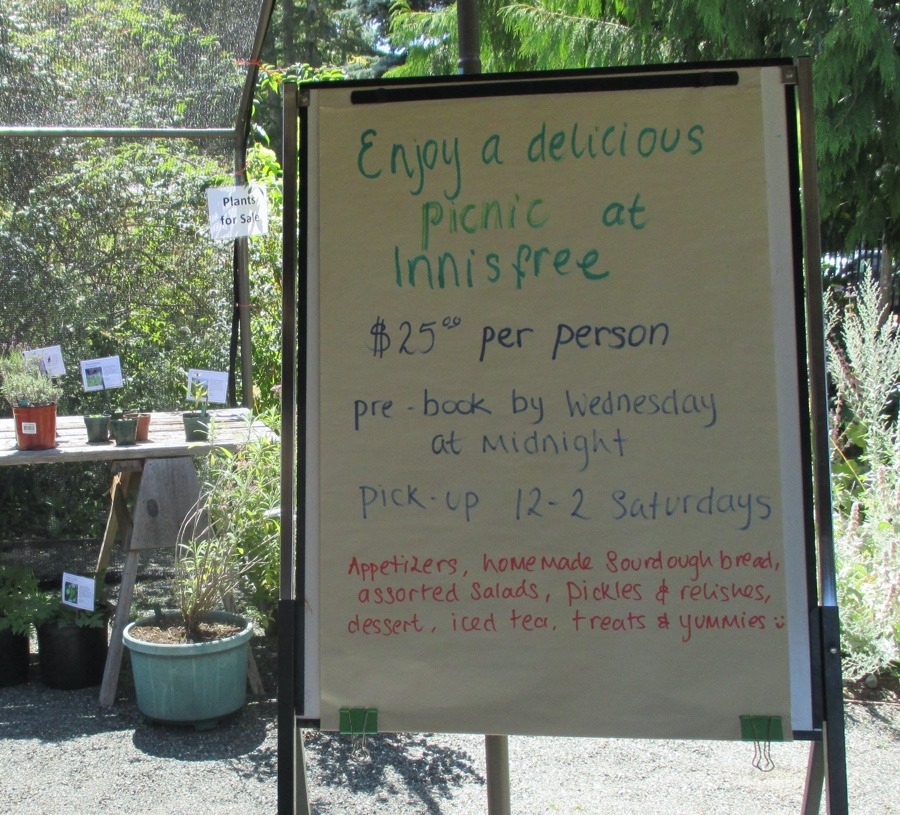 Enjoy a delicious
picnic at
Innisfree
$25.00 per person
pre-book by Wednesday
at Midnight
pick-up 12-2 Saturdays
Appetizers, homemade Sourdough bread,
assorted Salads, Pickles & relishes,
dessert, iced tea. treats & yummies :)
Plants
for Sale